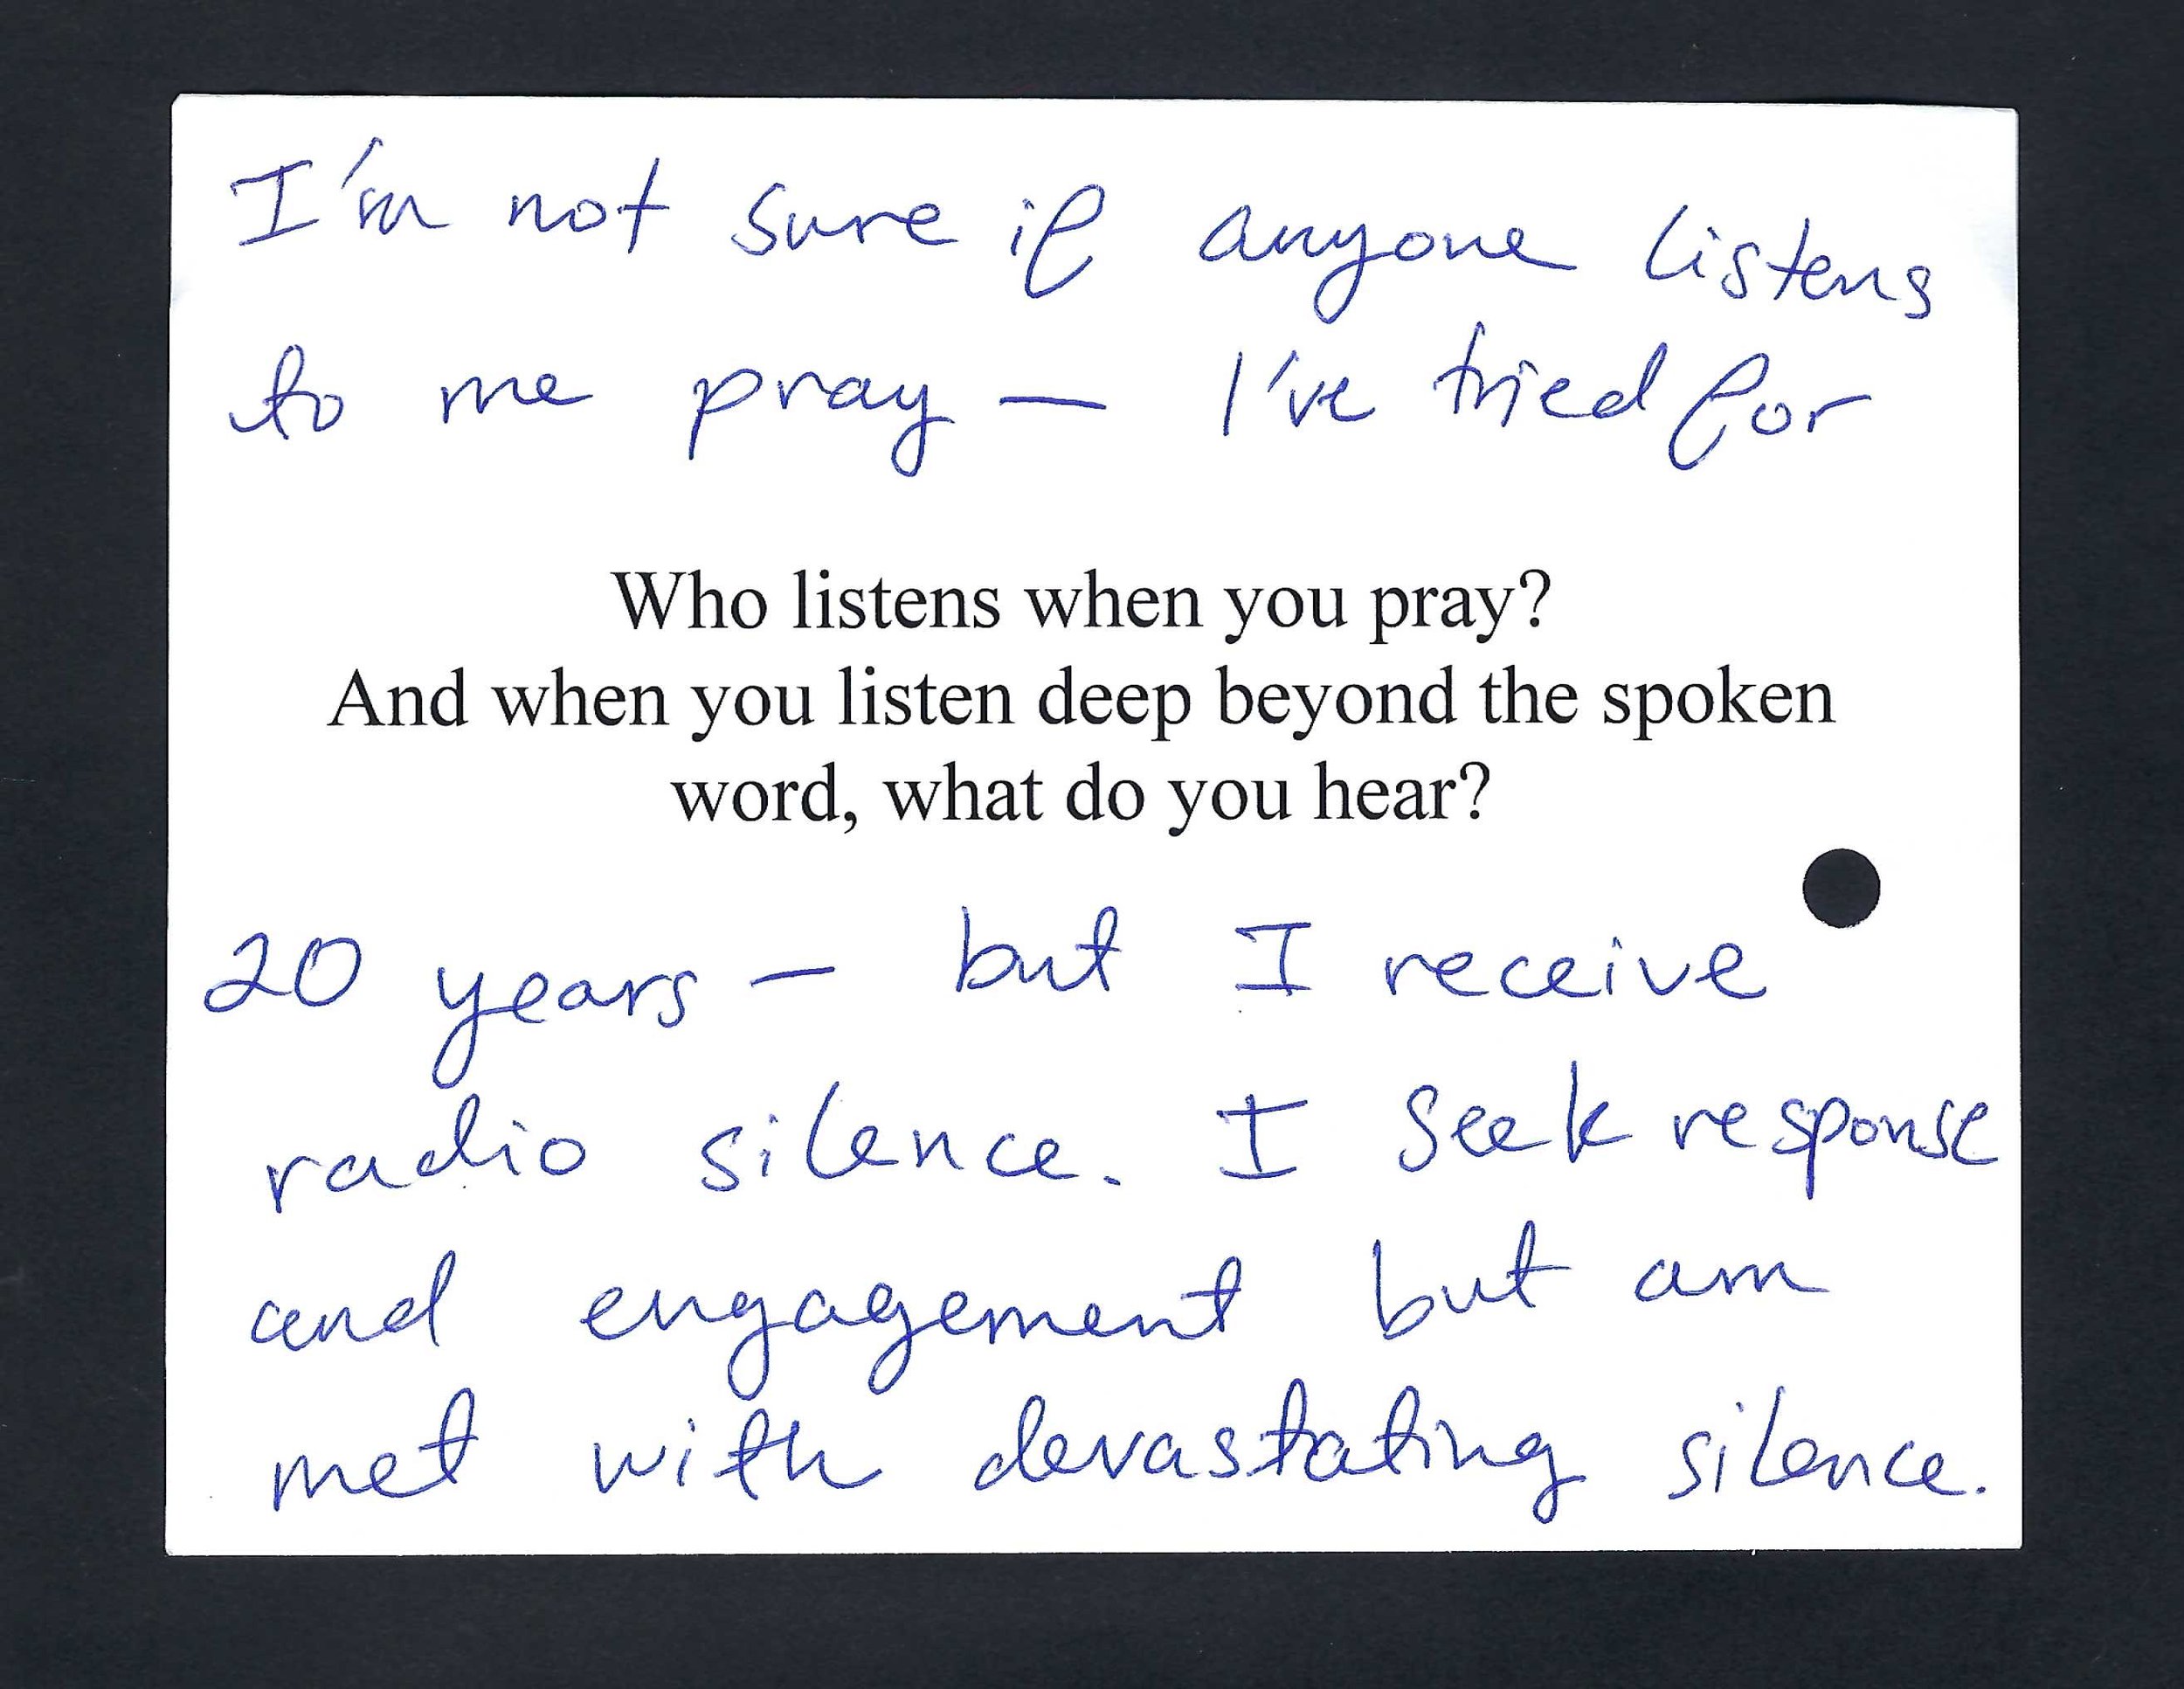 I'm not sure if anyone listens
to me pray — I've tried for
Who listens when you pray?
And when you listen deep beyond the spoken
word, what do you hear?
20 years — but I receive
radio silence. I seek response
and engagement but am
met with devastating silence.